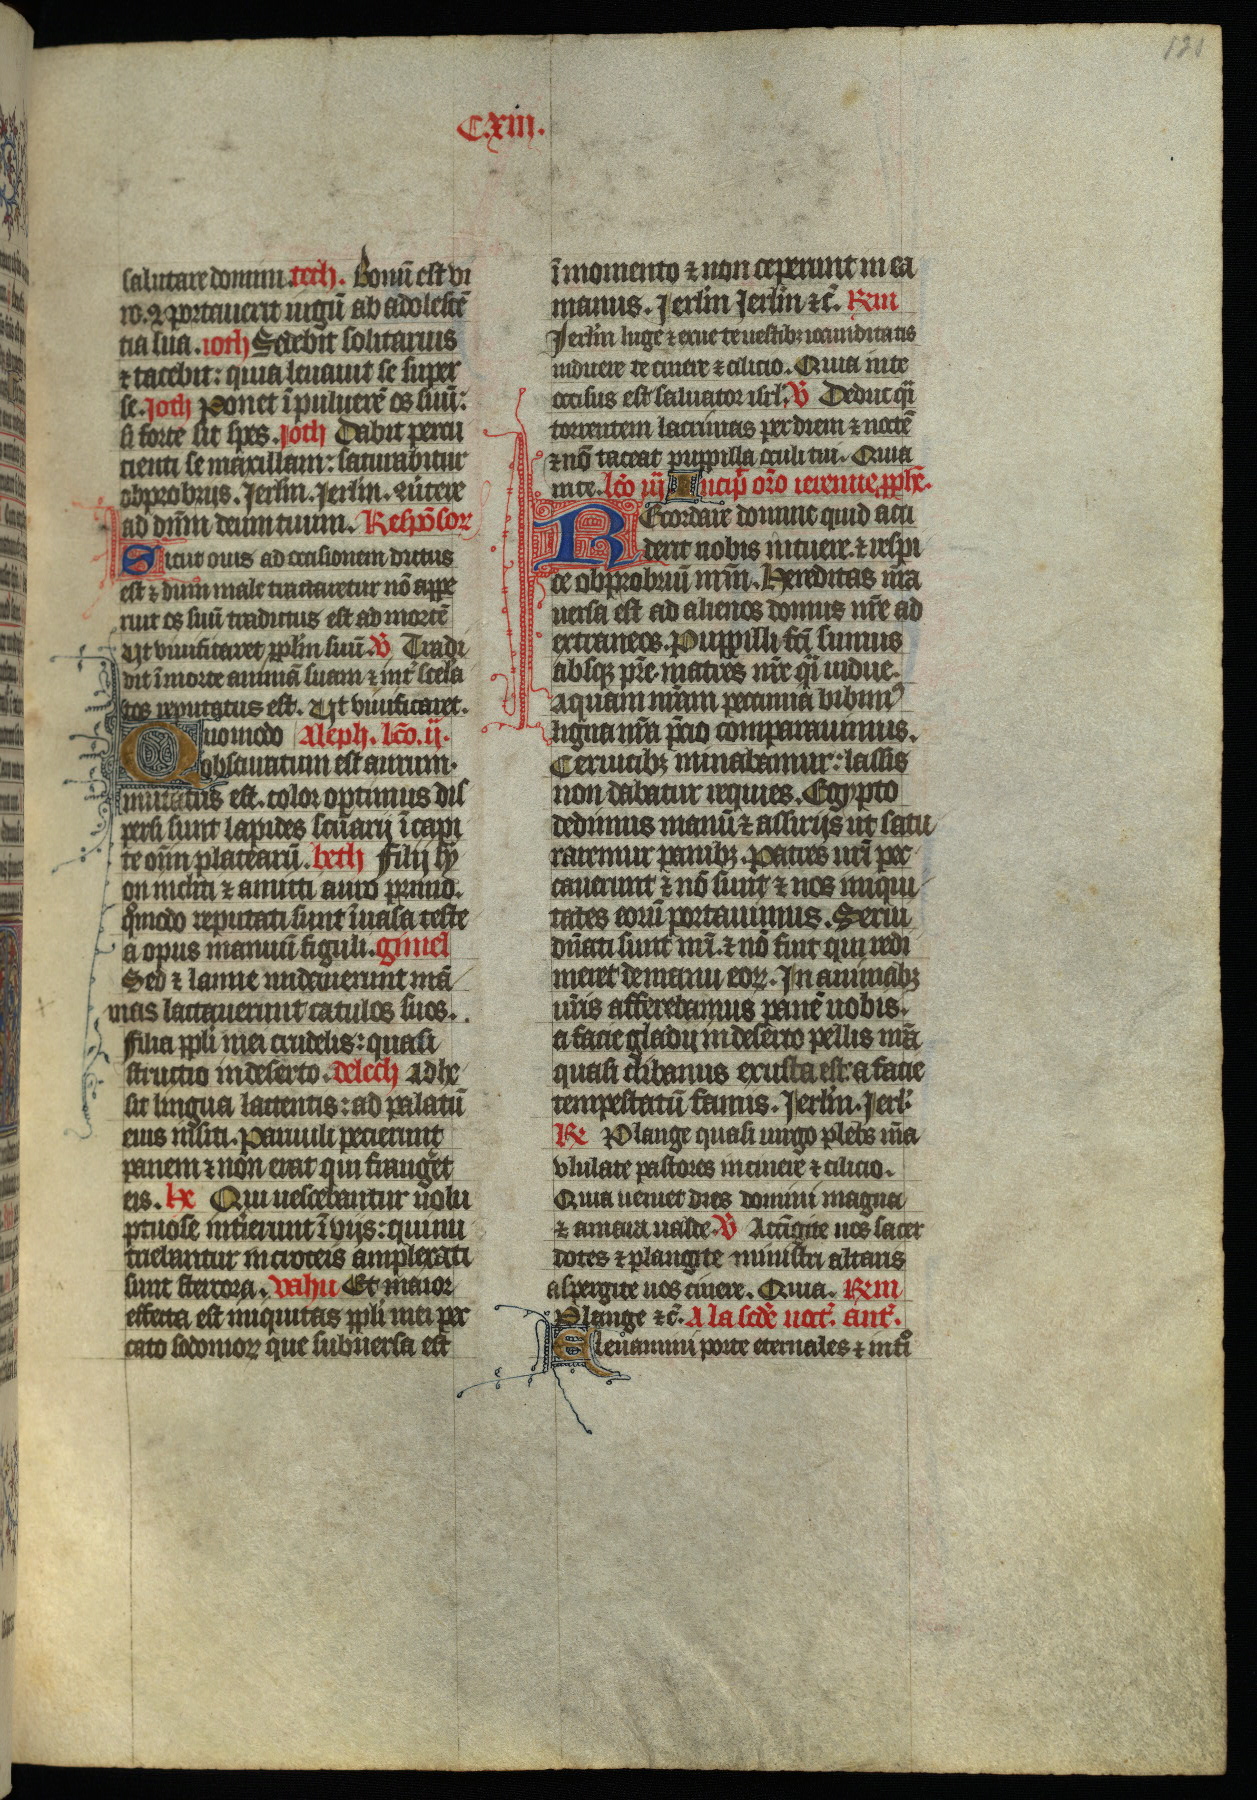 121
C.xiii.
salutare domini. tech. Bonū est vi
ro. 2 portauerit iugū ab adolescē
tia sua. ioth Sedebit solitarius
⁊ tacebit: quia leuauit se super
se. Joth Ponet ī puluerē os suū:
si forte sit spes. Joth Dabit percu
tienti se maxillam: saturabitur
obprobrijs. Jerlm̄. Jerlm̄. ɔ̄uertere
ad dn̄m deum tuum. Respōsor
Sicut ouis ad occisionem ductus
est ⁊ dum male tractaretur nō appe
ruit os suū traditus est ad mortē
Vt viuificaret pplm̄ suū. V̄ Tradi
dit ī morte animā suam ⁊ int̄ scela
tos reputatus est. Vt viuificaret.
Quomodo Aleph. lc̄o. ij.
obscuratum est aurum.
mutatus est. color optimus dis
persi sunt lapides scuarij ī capi
te om̄ platearū. beth Filij sy
on incliti ⁊ amicti auro primo.
qmodo reputati sunt ī uasa teste
a opus manuū figuli. gimel
Sed ⁊ lamie nudauerunt mā
mas lactauerunt catulos suos.
filia ppli mei crudelis: quasi
structio in deserto. delech Adhe
sit lingua lactentis: ad palatū
eius ī siti. Paruuli pecierunt
panem ⁊ non erat qui franget
eis. he Qui uescebantur uolu
ptuose int̄ierunt ī vijs: qui nu
triebantur in croceis amplexati
sunt stercora. Vahu Et maior
effecta est iniquitas ppli mei pec
cato sodomoꝝ que subuersa est
ī momento ⁊ non ceperunt in ea
manus. Jerlm̄ Jerlm̄ ⁊c̄. Rm̄
Jerlm̄ luge ⁊ exue te uestibꝫ iocunditatis
induere te cinere ⁊ cilicio. Quia in te
occisus est saluator isrl. V̄ Deduc qi
torrentem lacrimas per diem ⁊ noctē
⁊ nō taceat puppilla oculi tui. Quia
in te. lc̄o iij Incip̄ orō ieremie pphē.
Recordare domine quid acci
derit nobis intuere. ⁊ respi
ce obprobriū nr̄m. Hereditas nr̄a
uersa est ad alienos domus nr̄e ad
extraneos. Puppilli fc̄i sumus
absqꝫ pr̄e. matres nr̄e qi uidue.
Aquam nr̄am peccunia bibim⁹
ligna nr̄a p̄cio comparauimus.
Ceruicibꝫ minabamur: lassis
non dabatur requies. Egypto
dedimus manū ⁊ assirijs ut satu
raremur panibꝫ. Patres nr̄i pec
cauerunt ⁊ nō sunt ⁊ nos iniqui
tates eorū portauimus. Serui
dn̄ati sunt nr̄i. ⁊ nō fuit qui redi
meret de manu eoꝝ. In animabꝫ
nr̄is afferebamus panē nobis.
a facie gladij in deserto pellis nr̄a
quasi clibanus exusta est: a facie
tempestatū famis. Jerlm̄. Jerl̄.
R̄e Plange quasi uirgo plebs m̄a
vlulate pastores in cinere ⁊ cilicio.
Quia ueniet dies domini magna
⁊ amara ualde. V̄ Accīgite uos sacer
dotes ⁊ plangite ministri altaris
aspergite uos cinere. Quia. Rm̄
Plange ⁊c̄. A la scd̄e noct̄. ant̄.
Eleuamini porte eternales ⁊ int̄o